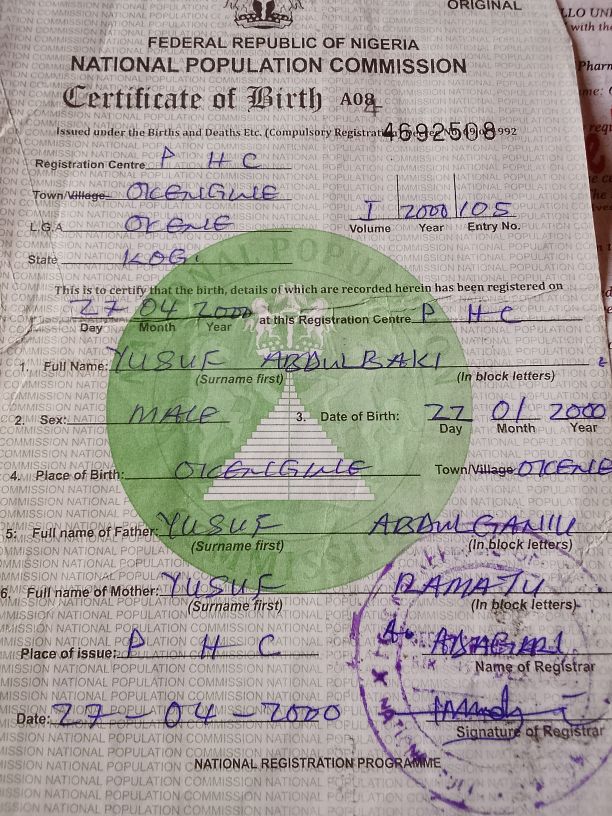 ORIGINAL
FEDERAL REPUBLIC OF NIGERIA
NATIONAL POPULATION COMMISSION
Certificate of Birth A084
Issued under the Births and Deaths Etc. (Compulsory 1992
4692508
Registration Centre P H C
Town/Village OKENGWE
L.G.A OKENE
State KOGI
I 2000 105
Volume Year Entry No.
This is to certify that the birth, details of which are recorded herein has been registered on
27 04 2000 at this Registration Centre P H C
Day Month Year
1. Full Name: YUSUF ABDULBAKI
(Surname first) (In block letters)
2. Sex: MALE 3. Date of Birth: 22 01 2000
Day Month Year
4. Place of Birth: OKENGWE Town/Village OKENE
5: Full name of Father: YUSUF ABDULGANIU
(Surname first) (In block letters)
6. Full name of Mother: YUSUF RAMATU
(Surname first) (In block letters)
Place of issue: P H C
Name of Registrar
Date: 27-04-2000
Signature of Registrar
NATIONAL REGISTRATION PROGRAMME